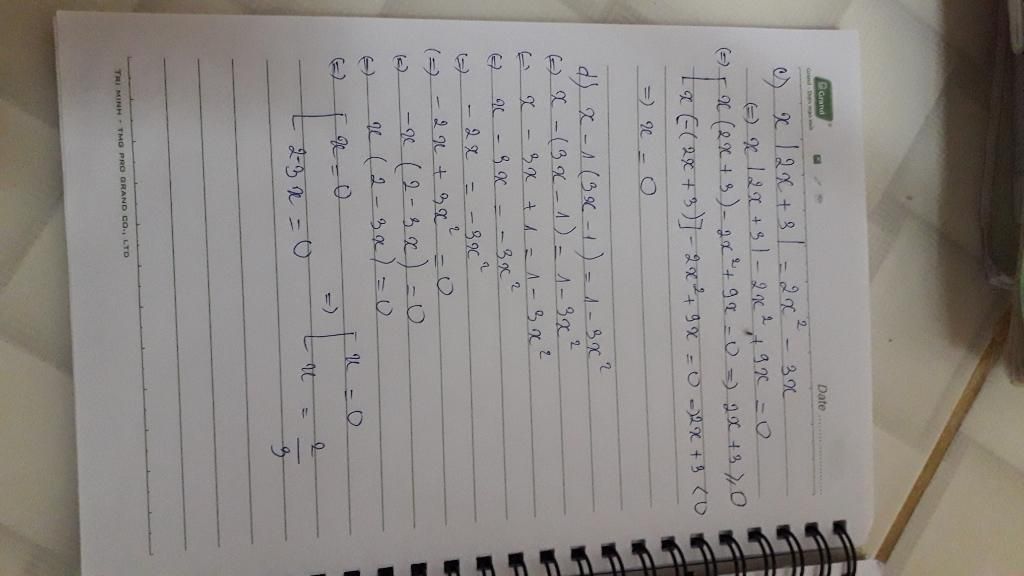 Grand
Date
c) x |2x + 3| = 2x² - 3x
(=) x |2x + 3| - 2x² + 3x = 0
(=) [ x (2x + 3) - 2x² + 3x = 0 => 2x + 3 ≥ 0
[ x [-(2x + 3)] - 2x² + 3x = 0 => 2x + 3 < 0
=> x = 0
d) x - 1 (3x - 1) = 1 - 3x²
(=) x - (3x - 1) = 1 - 3x²
(=) x - 3x + 1 = 1 - 3x²
(=) x - 3x = - 3x²
(=) - 2x = - 3x²
(=) - 2x + 3x² = 0
(=) -x (2 - 3x) = 0
(=) x (2 - 3x) = 0
(=) [ x = 0 => [ x = 0
[ 2-3x = 0 [ x = 2/3
TRI MINH - TMG PRO GRAND CO., LTD